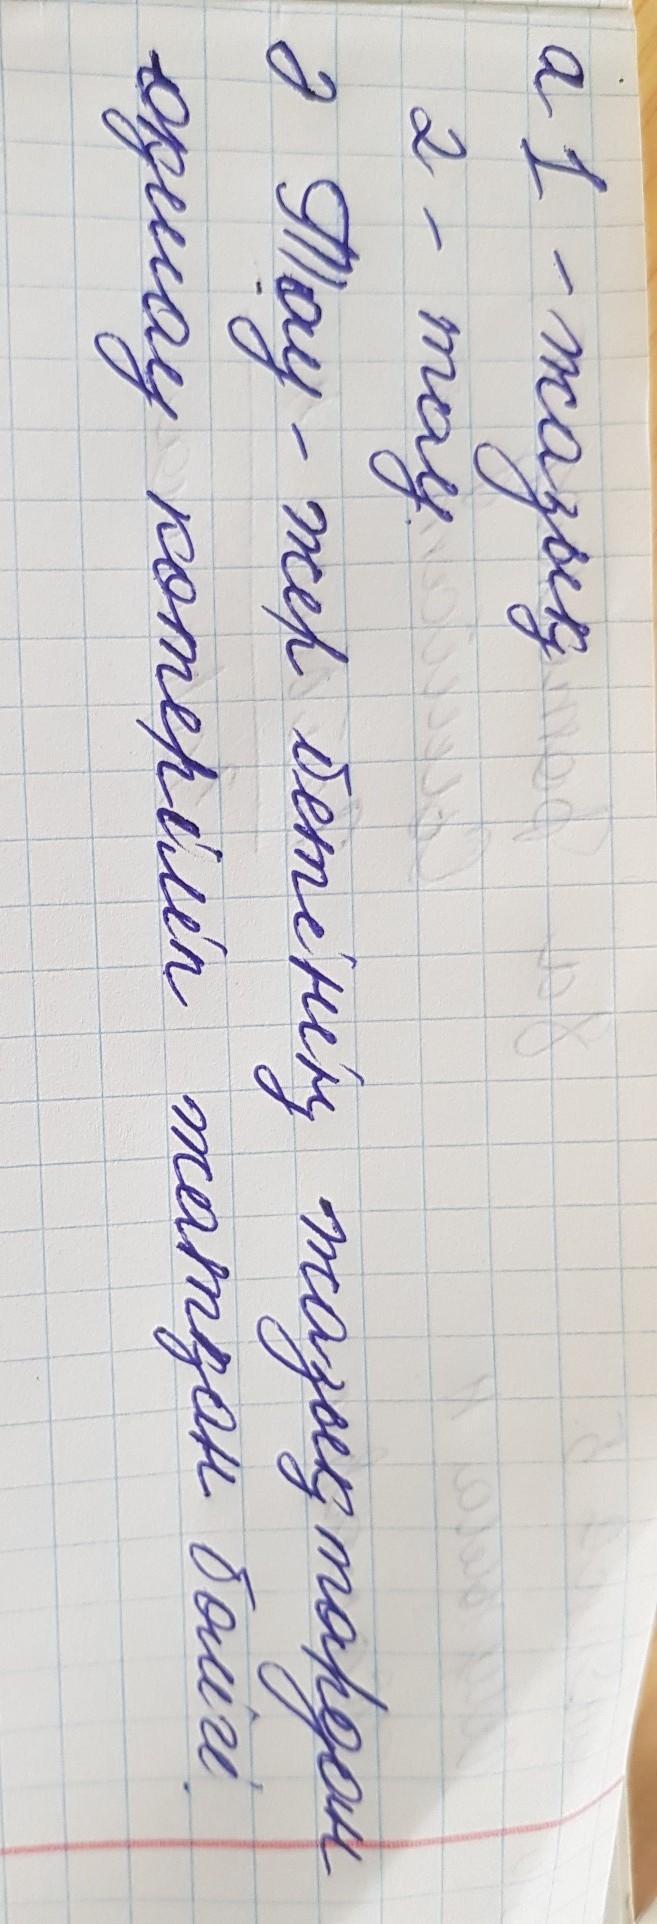 а 1 - жазық
2 - тау
ә Тау - жер бетінің жазықтардан
оқшау көтеріліп жатқан бөлігі.